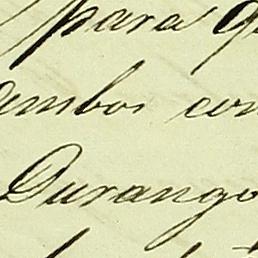 para
ambos con
Durango